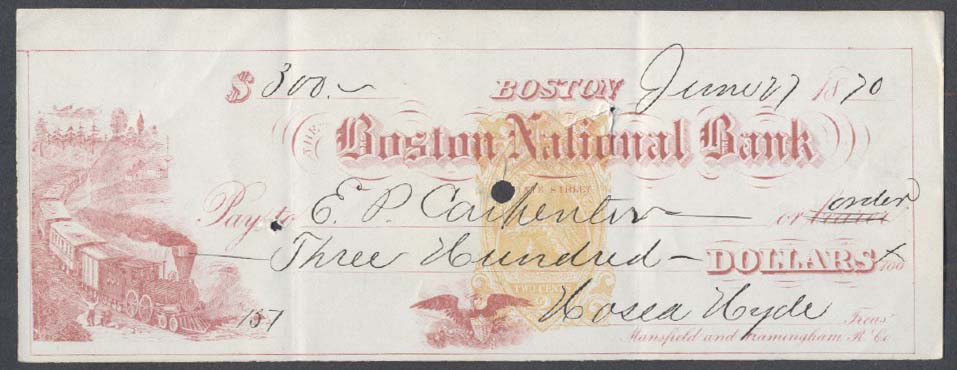 $ 300.~ BOSTON June 27 1870
THE Boston National Bank
STATE STREET
Pay to E. P. Carpenter — or bearer order
Three Hundred — DOLLARS X/100
TWO CENTS
2
157 Hosea Hyde Treas.
Mansfield and Framingham R. Co